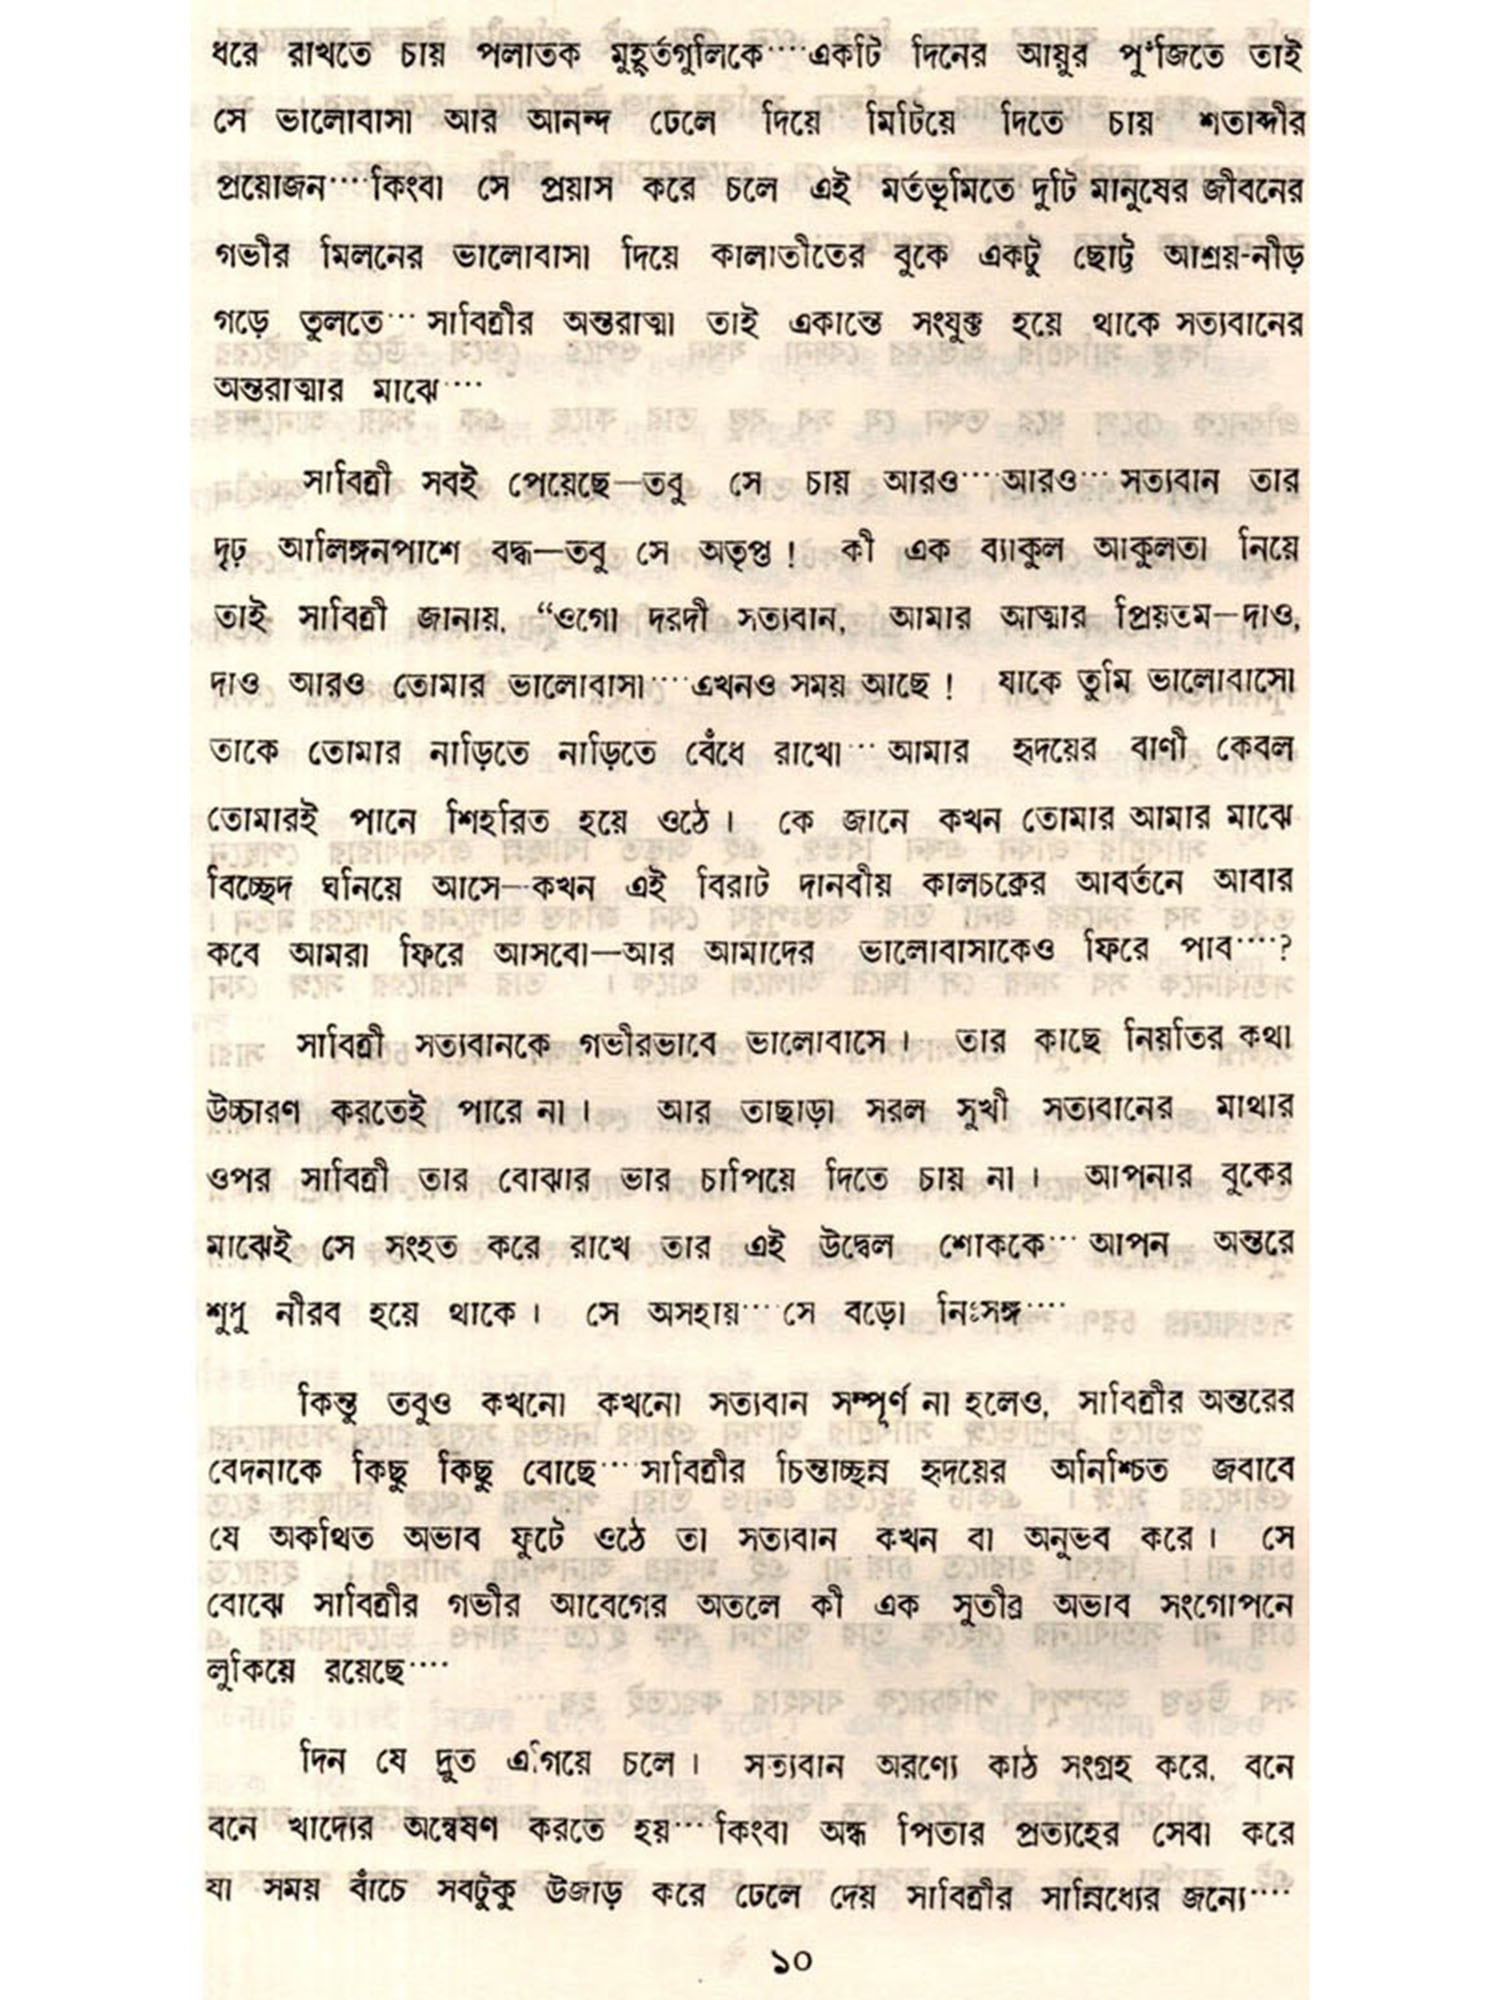 ধরে রাখতে চায় পলাতক মুহূর্তগুলিকে····একটি দিনের আয়ুর পুঁজিতে তাই
সে ভালোবাসা আর আনন্দ ঢেলে দিয়ে মিটিয়ে দিতে চায় শতাব্দীর
প্রয়োজন····কিংবা সে প্রয়াস করে চলে এই মর্তভূমিতে দুটি মানুষের জীবনের
গভীর মিলনের ভালোবাসা দিয়ে কালাতীতের বুকে একটু ছোট্ট আশ্রয়-নীড়
গড়ে তুলতে···সাবিত্রীর অন্তরাত্মা তাই একান্তে সংযুক্ত হয়ে থাকে সত্যবানের
অন্তরাত্মার মাঝে····
সাবিত্রী সবই পেয়েছে—তবু সে চায় আরও····আরও···সত্যবান তার
দৃঢ় আলিঙ্গনপাশে বদ্ধ—তবু সে অতৃপ্ত ! কী এক ব্যাকুল আকুলতা নিয়ে
তাই সাবিত্রী জানায়, “ওগো দরদী সত্যবান, আমার আত্মার প্রিয়তম—দাও,
দাও আরও তোমার ভালোবাসা····এখনও সময় আছে ! যাকে তুমি ভালোবাসো
তাকে তোমার নাড়িতে নাড়িতে বেঁধে রাখো···আমার হৃদয়ের বাণী কেবল
তোমারই পানে শিহরিত হয়ে ওঠে। কে জানে কখন তোমার আমার মাঝে
বিচ্ছেদ ঘনিয়ে আসে—কখন এই বিরাট দানবীয় কালচক্রের আবর্তনে আবার
কবে আমরা ফিরে আসবো—আর আমাদের ভালোবাসাকেও ফিরে পাব····?
সাবিত্রী সত্যবানকে গভীরভাবে ভালোবাসে। তার কাছে নিয়তির কথা
উচ্চারণ করতেই পারে না। আর তাছাড়া সরল সুখী সত্যবানের মাথার
ওপর সাবিত্রী তার বোঝার ভার চাপিয়ে দিতে চায় না। আপনার বুকের
মাঝেই সে সংহত করে রাখে তার এই উদ্বেল শোককে···আপন অন্তরে
শুধু নীরব হয়ে থাকে। সে অসহায়····সে বড়ো নিঃসঙ্গ····
কিন্তু তবুও কখনো কখনো সত্যবান সম্পূর্ণ না হলেও, সাবিত্রীর অন্তরের
বেদনাকে কিছু কিছু বোছে····সাবিত্রীর চিন্তাচ্ছন্ন হৃদয়ের অনিশ্চিত জবাবে
যে অকথিত অভাব ফুটে ওঠে তা সত্যবান কখন বা অনুভব করে। সে
বোঝে সাবিত্রীর গভীর আবেগের অতলে কী এক সুতীব্র অভাব সংগোপনে
লুকিয়ে রয়েছে····
দিন যে দ্রুত এগিয়ে চলে। সত্যবান অরণ্যে কাঠ সংগ্রহ করে, বনে
বনে খাদ্যের অন্বেষণ করতে হয়····কিংবা অন্ধ পিতার প্রত্যহের সেবা করে
যা সময় বাঁচে সবটুকু উজাড় করে ঢেলে দেয় সাবিত্রীর সান্নিধ্যের জন্যে····
১০